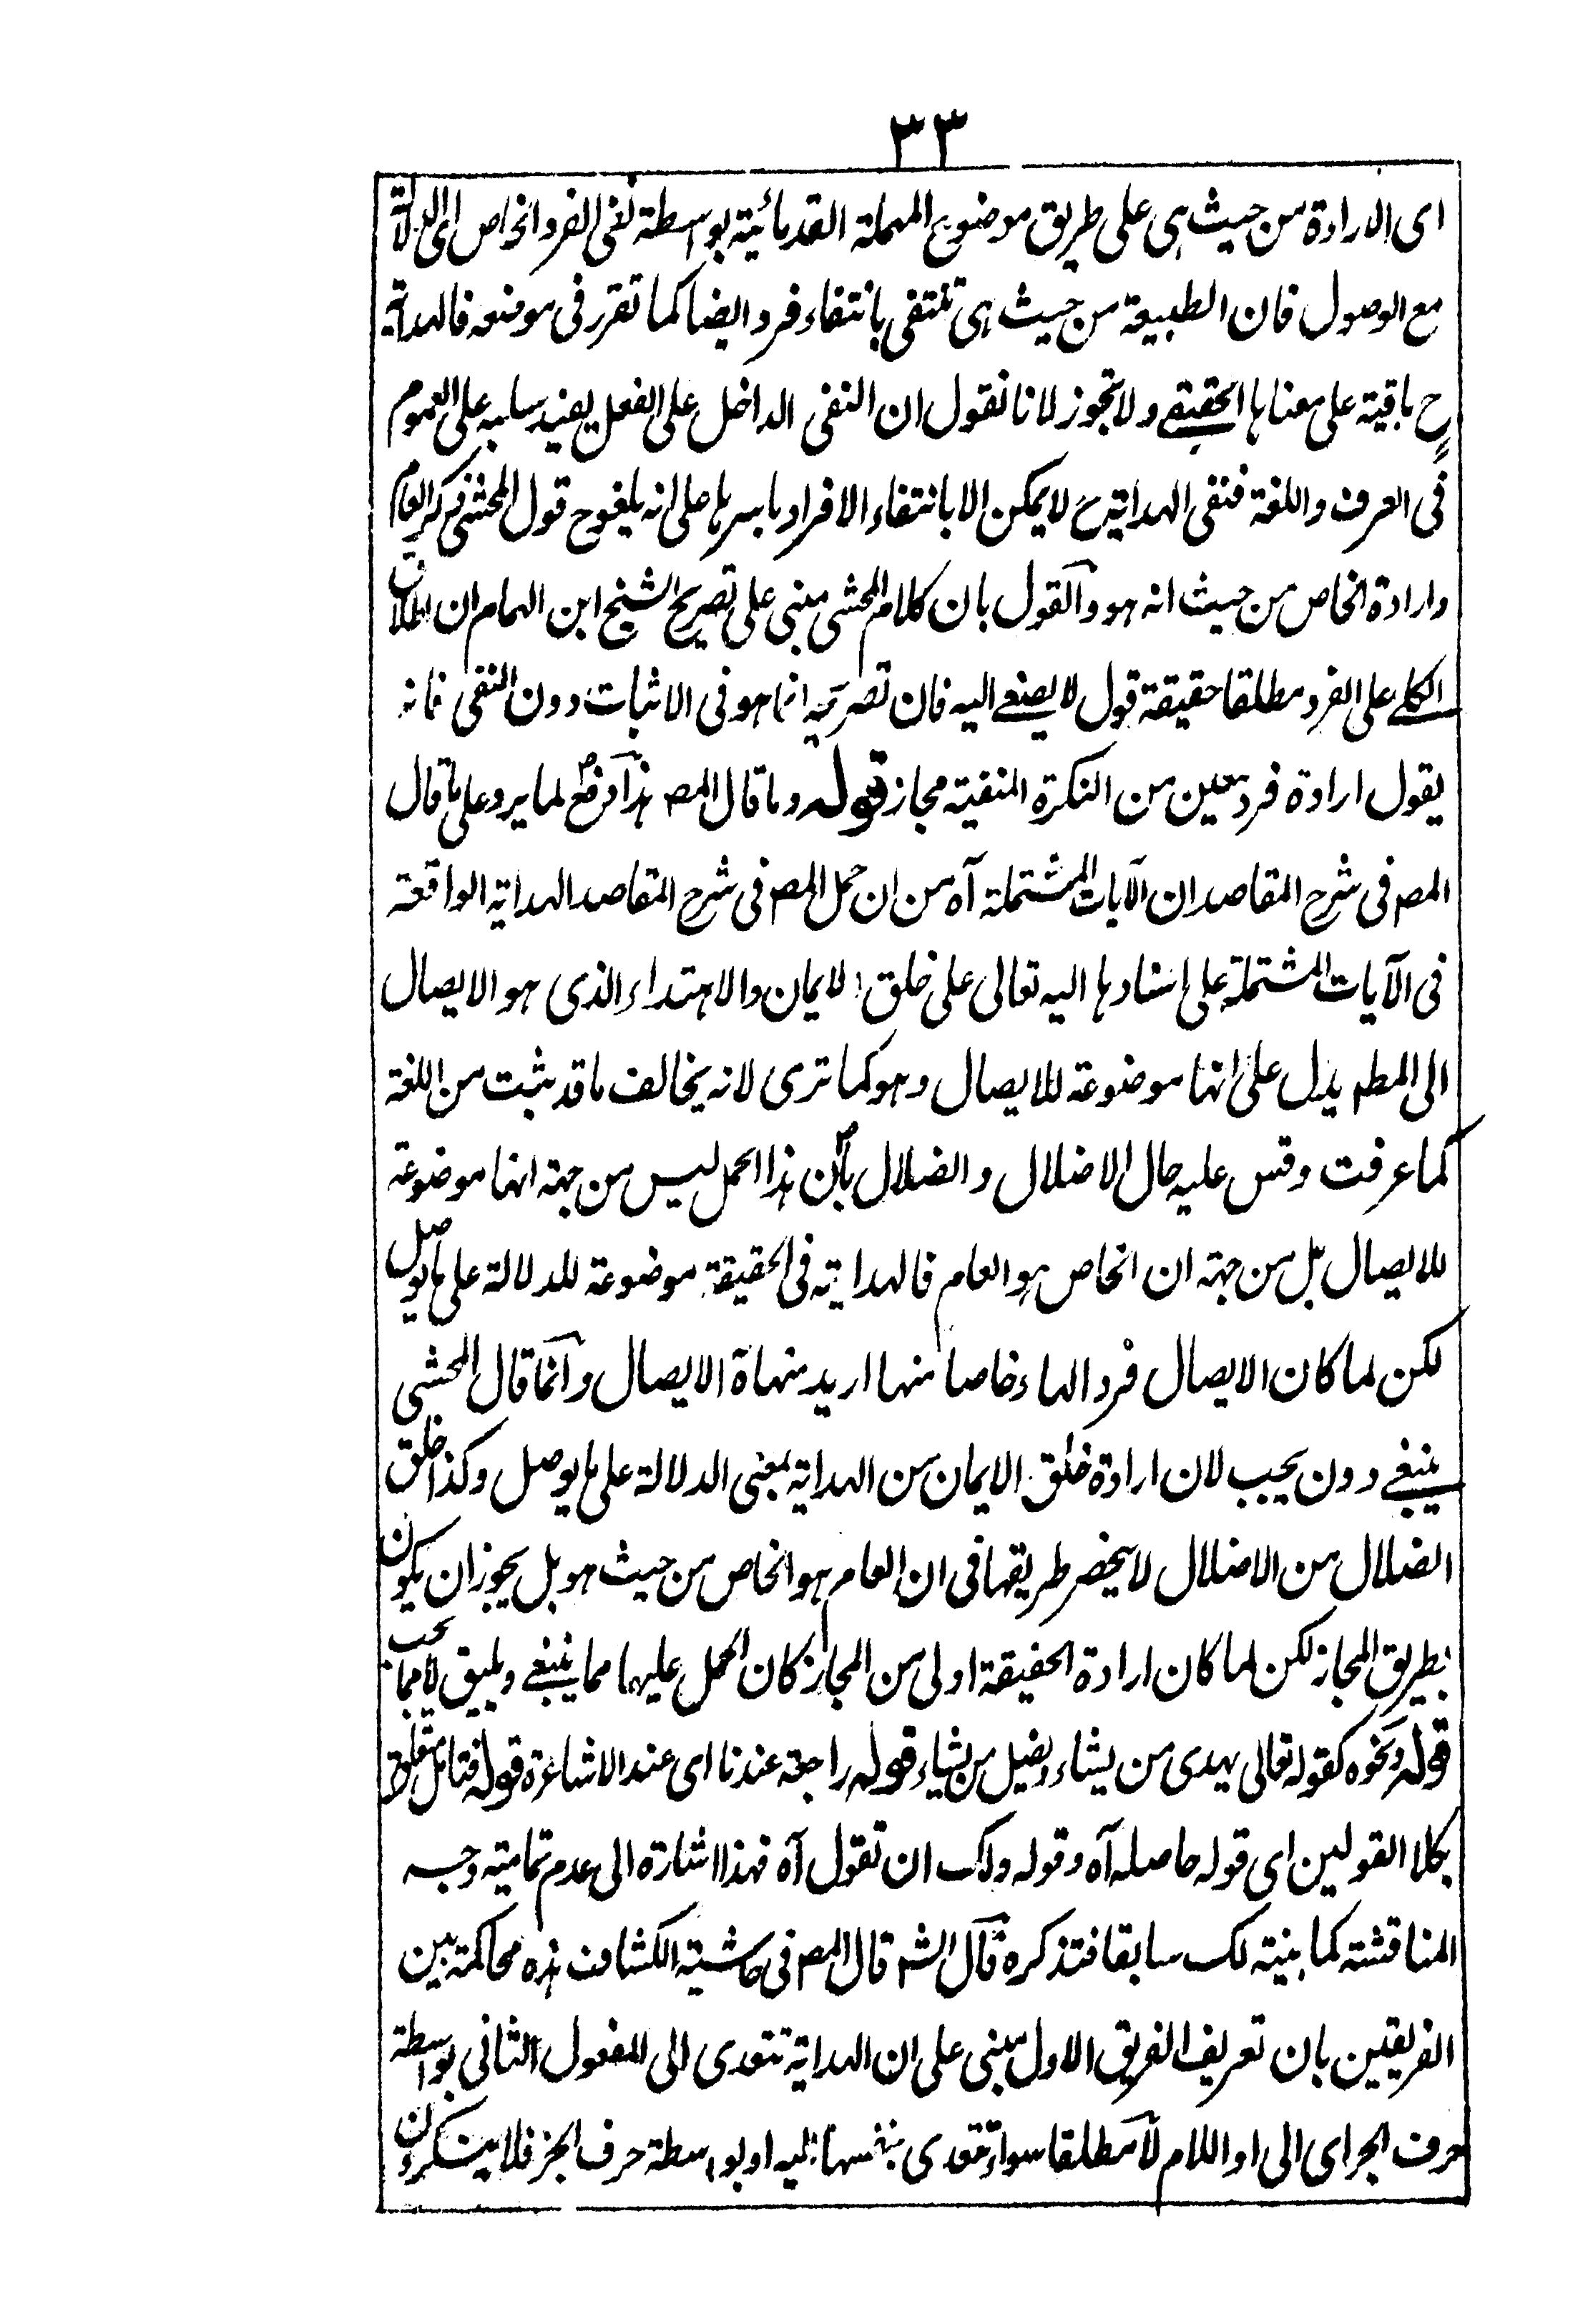 ٣٣
اى الارادة من حيث هى على طريق موضوع المهملة القدمائية بواسطة نفى الفرد الخاص اى الدلالة
مع الوصول فان الطبيعة من حيث هى تنتفى بانتفاء فرد ايضا كما تقرر فى موضعه فالهداية
ح باقية على معناها الحقيقے ولا تجوز لانا نقول ان النفى الداخل على الفعل يفيد سلبه على العموم
فى العرف واللغة فنفى الهداية ح لا يمكن الا بانتفاء الافراد باسرها على انه يلغو ح قول المحشى ذكر العام
وارادة الخاص من حيث انه هو والقول بان كلام المحشى مبنى على تصريح الشيخ ابن الهمام ان اطلاق
الكلے على الفرد مطلقا حقيقة قول لا يصغے اليه فان تصريحه انما هو فى الاثبات دون النفى فانه
يقول ارادة فرد معين من النكرة المنفية مجاز قوله وما قال المصـ هذا دفع لما يرد على ما قال
المصـ فى شرح المقاصد ان الآيات المشتملة آه من ان حمل المصـ فى شرح المقاصد الهداية الواقعة
فى الآيات المشتملة على اسنادها اليه تعالى على خلق الايمان والاهتداء الذى هو الايصال
الى المطـ يدل على انها موضوعة للايصال وهو كما ترى لانه يخالف ما قد ثبت من اللغة
كما عرفت وقس عليه حال الاضلال والضلال بان هذا الحمل ليس من جهة انها موضوعة
للايصال بل من جهة ان الخاص هو العام فالهداية فى الحقيقة موضوعة للدلالة على ما يوصل
لكن لما كان الايصال فردا لها وخاصا منها اريد منها ة الايصال وانما قال المحشى
ينبغے دون يجب لان ارادة خلق الايمان من الهداية بمعنى الدلالة على ما يوصل وكذا خلق
الضلال من الاضلال لا ينحصر طريقها فى ان العام هو الخاص من حيث هو بل يجوز ان يكون
بطريق المجاز لكن لما كان ارادة الحقيقة اولى من المجاز كان الحمل عليها مما ينبغے ويليق لا مما يجب
قوله ونحوه كقوله تعالى يهدى من يشاء ويضل من يشاء قوله راجعة عندنا اى عند الاشاعرة قوله فتامل متعلق
بكلا القولين اى قوله حاصله آه وقوله ولك ان تقول آه فهذا اشارة الى عدم تمامية وجه
المناقشة كما بينته لك سابقا فتذكره قال الشـ قال المصـ فى حاشية الكشاف هذه محاكمة بين
الفريقين بان تعريف الفريق الاول مبنى على ان الهداية تتعدى الى المفعول الثانى بواسطة
حرف الجر اى الى او اللام لا مطلقا سواء تتعدى بنفسها اليه او بواسطة حرف الجر فلا ينكرون